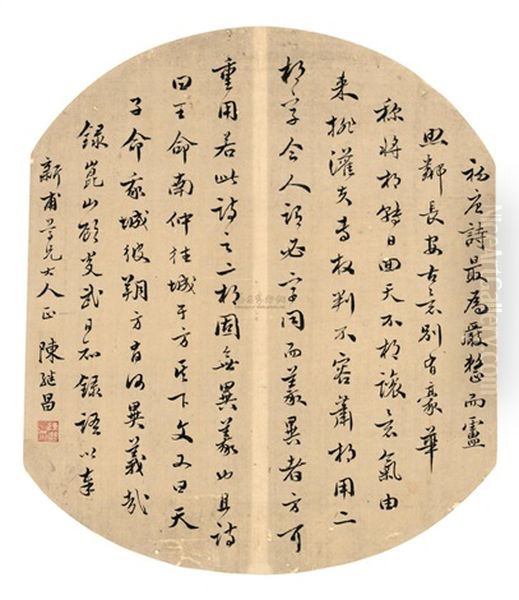 初唐詩最為嚴整而盧
照鄰長安古意別有豪華
稱將相轉日回天不相讓意氣由
來排灌夫專權判不容蕭相用二
相字今人謂必字同而義異者方可
重用若此詩之二相固無異義也且詩
曰王命南仲往城于方其下文又曰天
子命我城彼朔方有何異義哉
錄崑山顧炎武日知錄語以奉
新甫尊兄大人正 陳繼昌